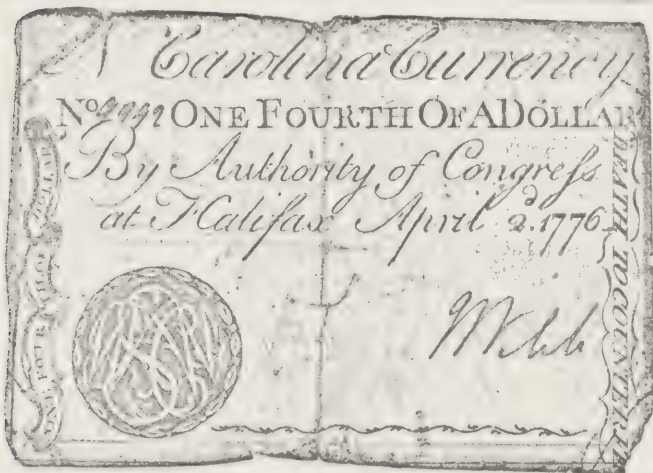 N Carolina Currency
No ONE FOURTH OF A DOLLAR
By Authority of Congreſs
at Halifax April 2d. 1776
Webb
DEATH TO COUNTERFE
ONE FOURTH OF DOLLAR